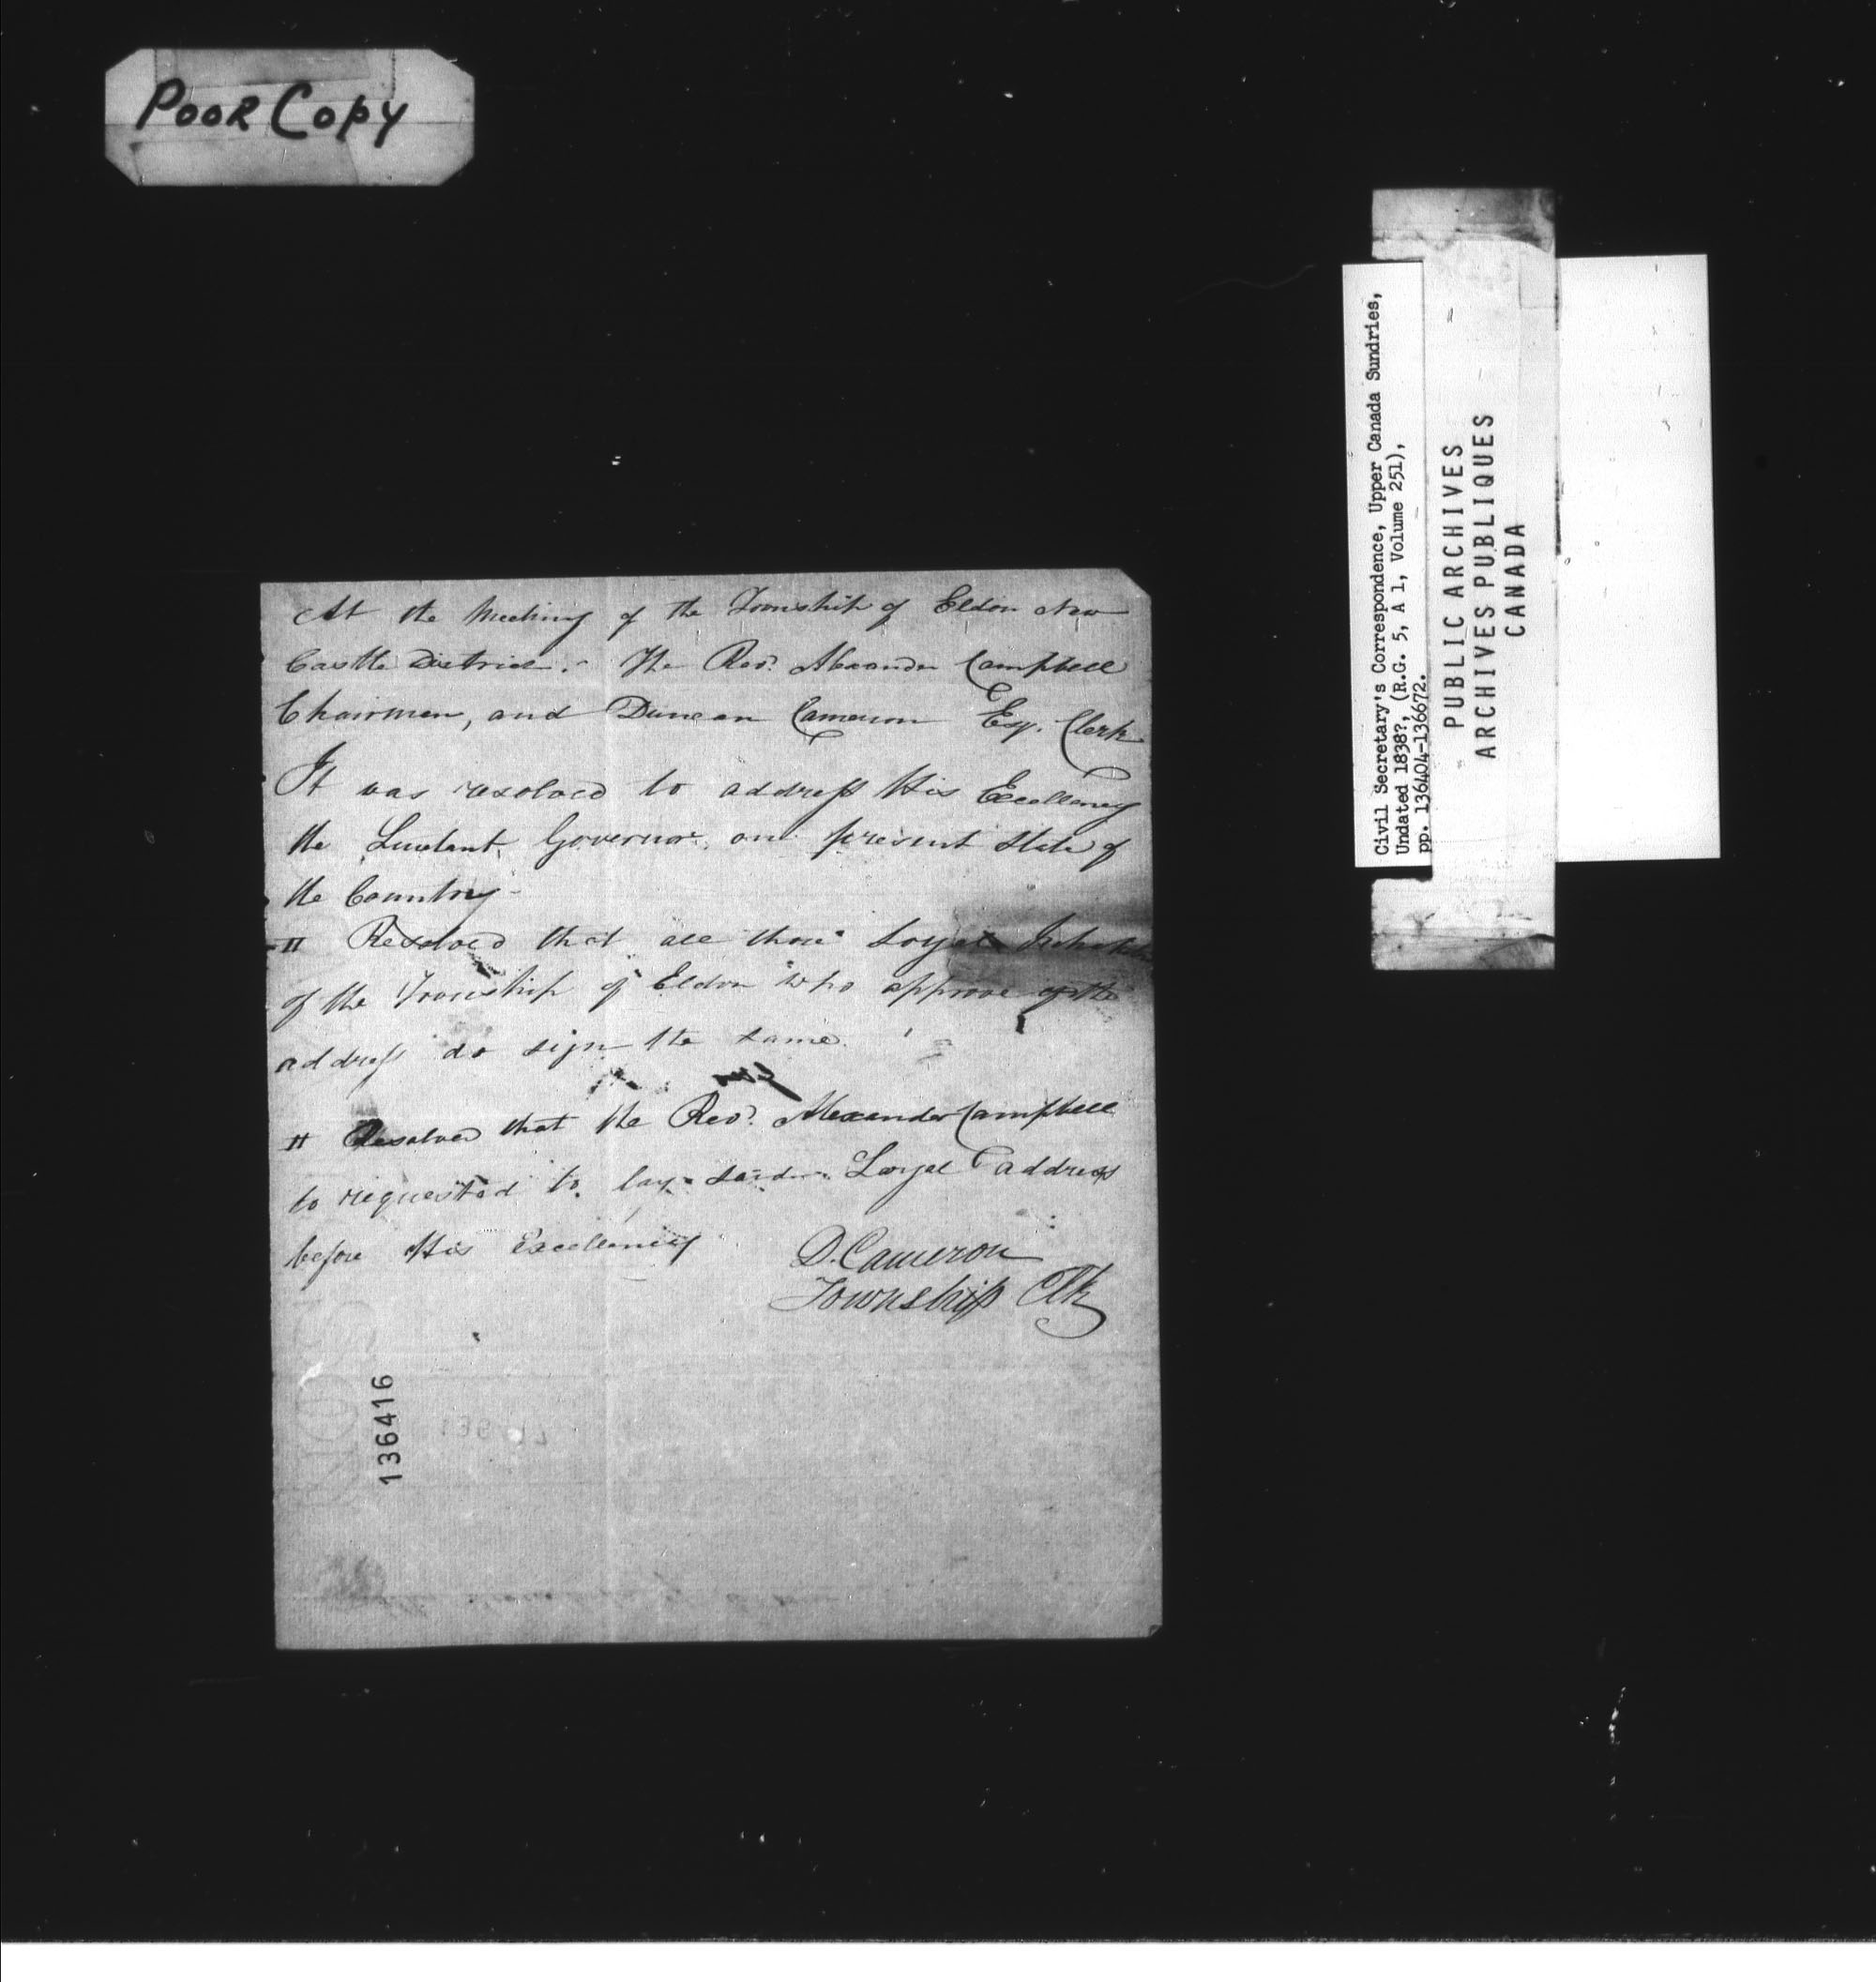 Poor Copy
Civil Secretary's Correspondence, Upper Canada Sundries,
Undated 1838?, (R.G. 5, A 1, Volume 251),
pp. 136404-136672.
PUBLIC ARCHIVES
ARCHIVES PUBLIQUES
CANADA
At the Meeting of the Township of Eldon New
Castle District. The Revd. Alexander Campbell
Chairman, and Duncan Cameron Esq. Clerk
It was resolved to address His Excellency
the Governor, on present State of
the Country -
II Resolved that all those Loyal
of the Township of Eldon who approve of the
address do sign the same.
II Resolved that the Revd. Alexander Campbell
to requested to lay Loyal address
before His Excellency
D. Cameron
Township Clk
136416